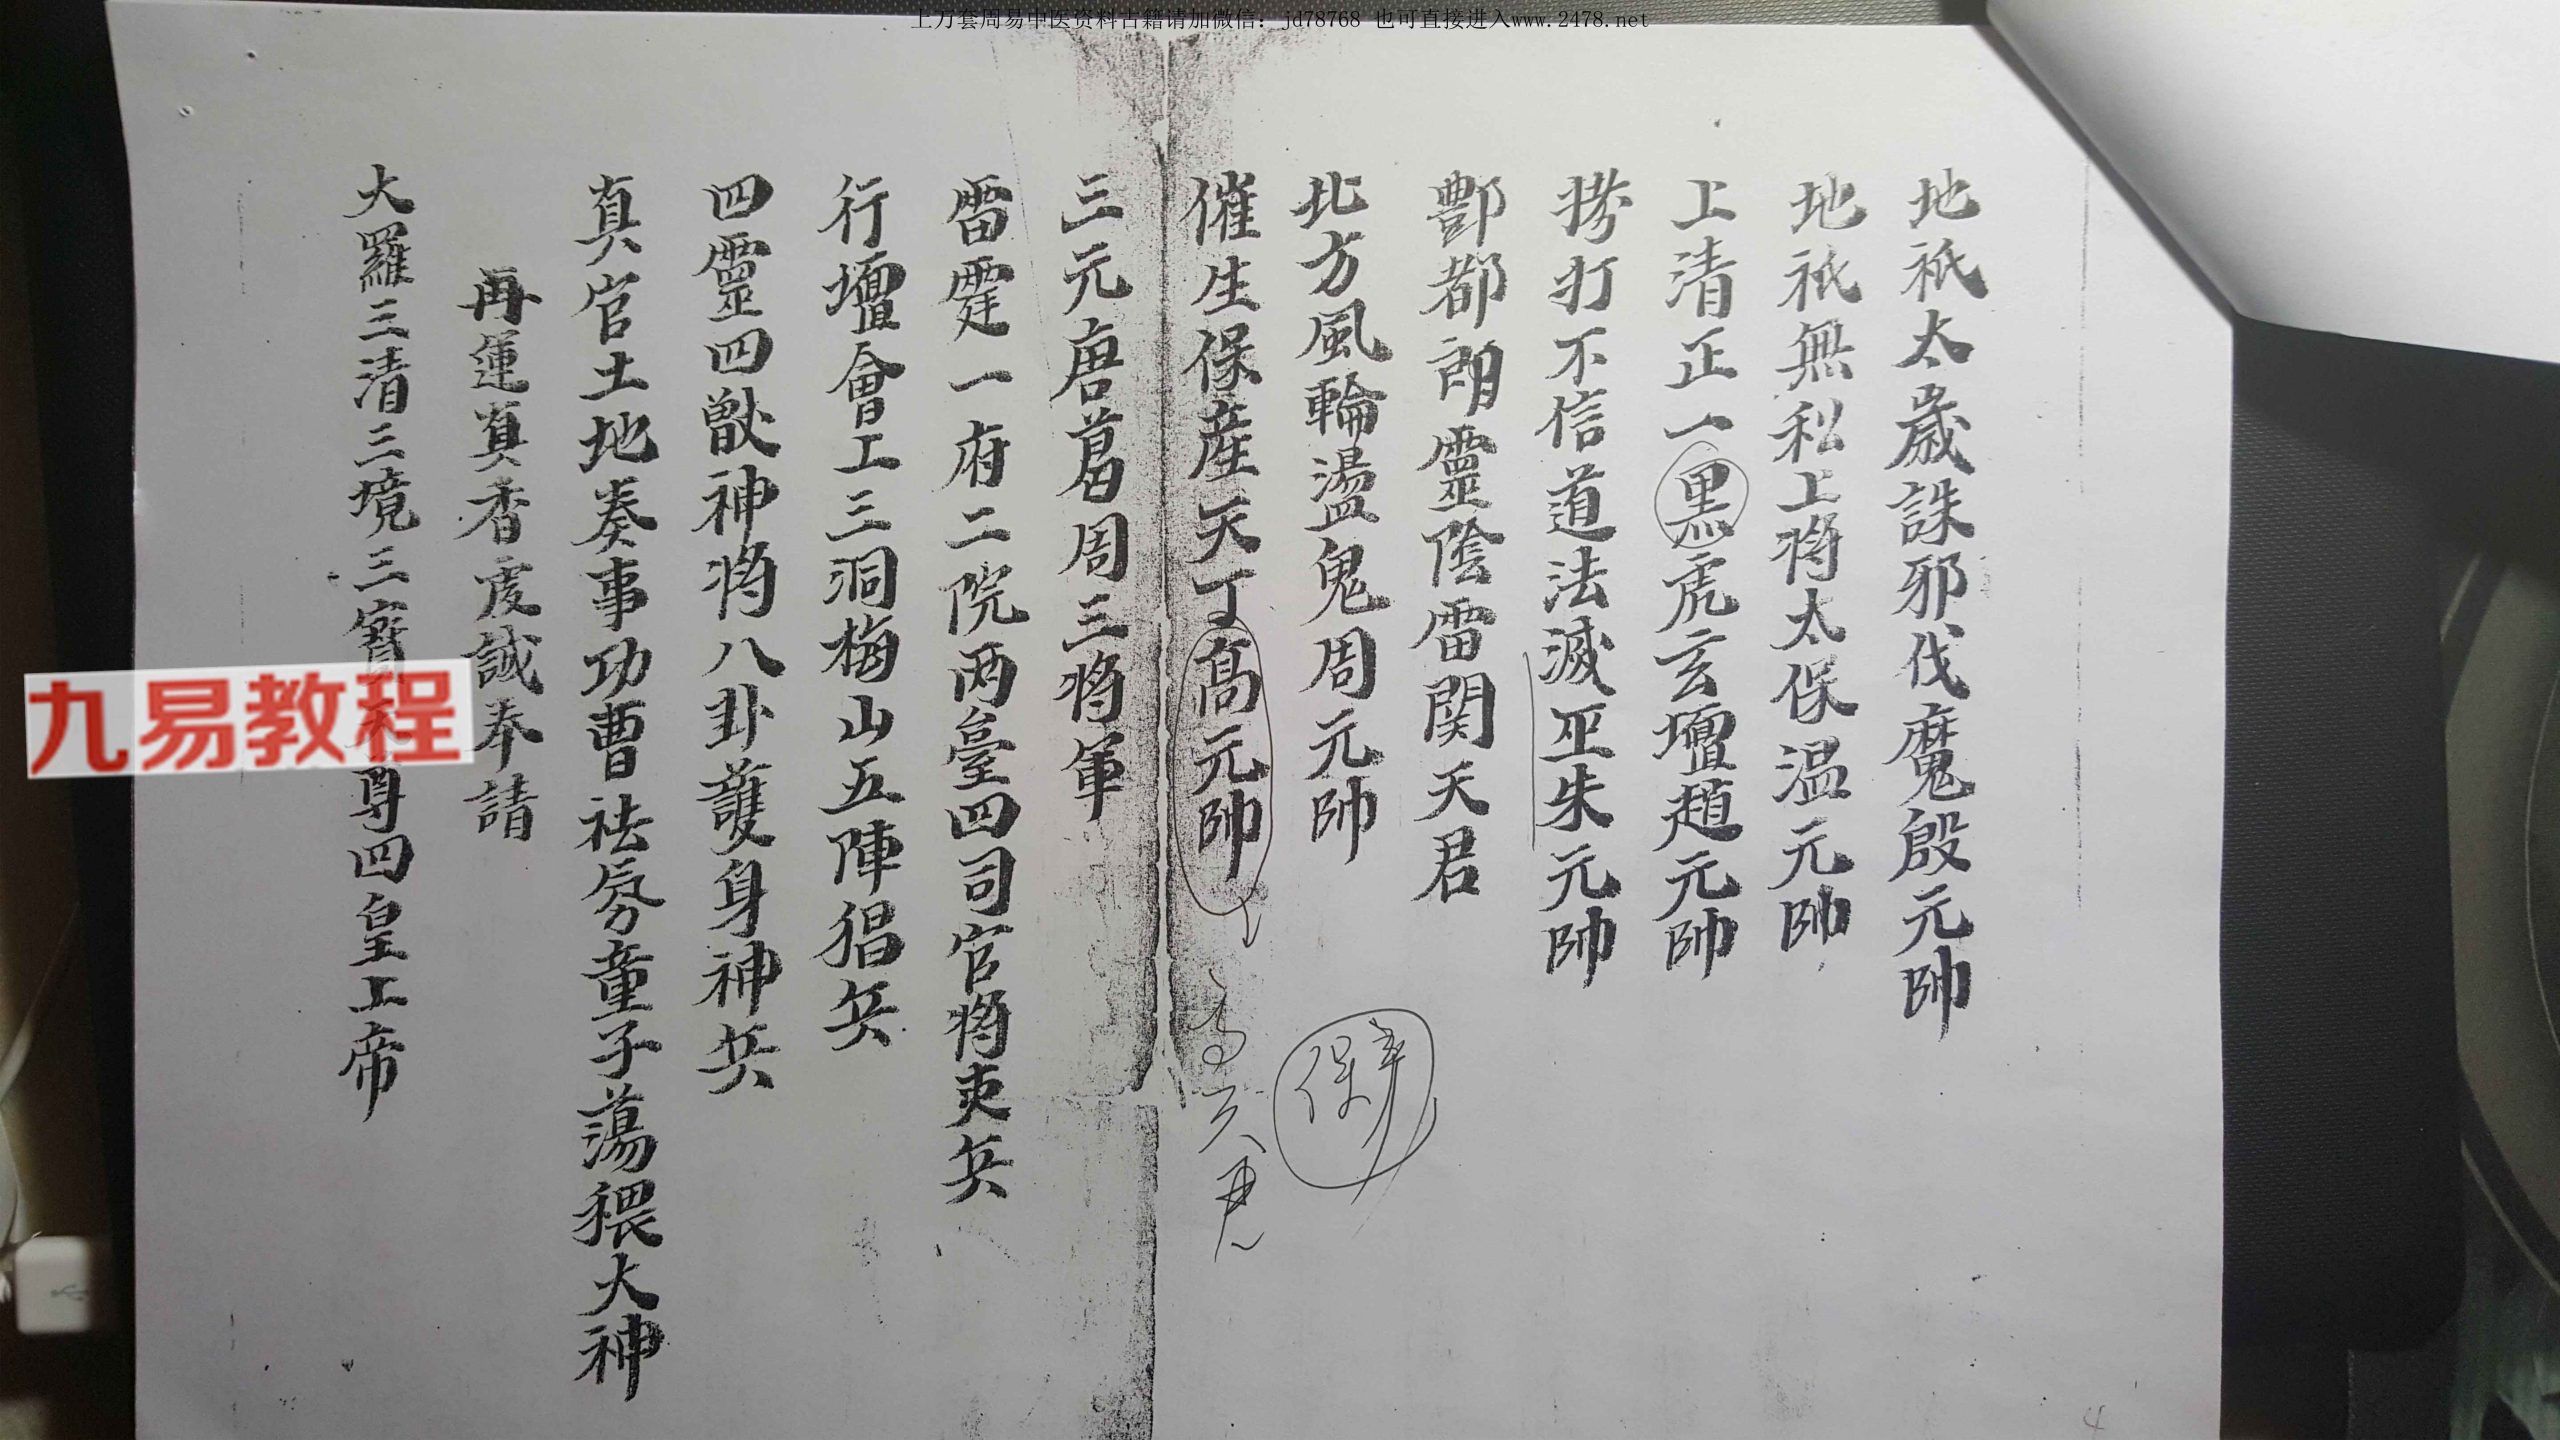 上万套周易中医资料古籍请加微信：jd78768 也可直接进入www.2478.net
地祇太歲誅邪伐魔殷元帥
地祇無私上將太保温元帥
上清正一黑虎玄壇趙元帥
拷打不信道法滅巫朱元帥
酆都朗靈陰雷関天君
北方風輪盪鬼周元帥
催生保産天丁高元帥
三元唐葛周三將軍
雷霆一府二院两臺四司官將吏兵
行壇會上三洞梅山五陣猖兵
四靈四獸神將八卦護身神兵
真官土地奏事功曹祛氛童子蕩穢大神
再運真香虔誠奉請
大羅三清三境三寳天尊四皇上帝
九易教程
4